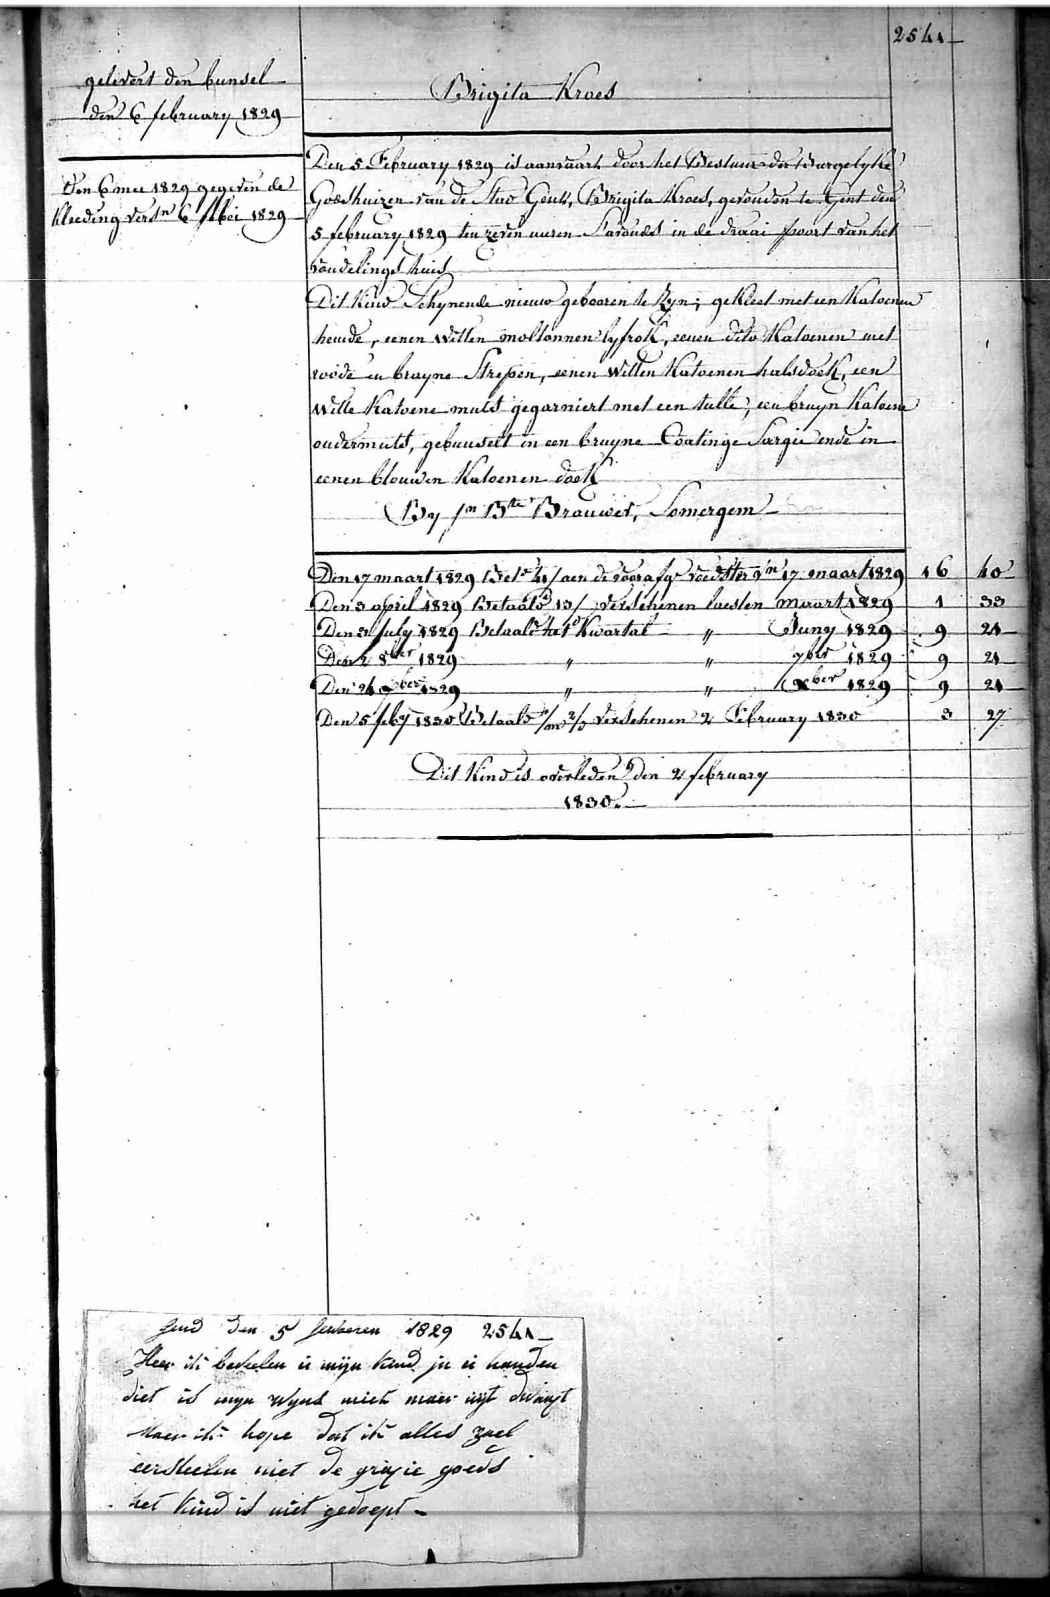 2541
gelevert den bunsel
den 6 february 1829
Brigita Kroes
Den 5 February 1829 is aanvaart door het Bestuur der Burgelyke
Godshuizen van de Stad Gent, Brigita Kroes, gevonden te Gent den
5 february 1829 ten zeven uuren S'avonds in de draai poort van het
vondelings huis
den 6 mee 1829 gegeven de
kleeding versn 6 mei 1829
Dit Kind Schynende nieuw gebooren te Zyn; gekleet met een Katoenen
hemde, eenen Witten moltonnen lyfrok, eenen dito Katoenen met
roode en bruyne Strepen, eenen Witten Katoenen halsdoek, een
Witte Katoene muts gegarniert met een tulle, een bruyn Katoene
ondermuts, gebunselt in een bruyne Coatinge Sargie ende in
eenen blouwen Katoenen doek
By Jn Bte Brauwer, Somergem
Den 17 maart 1829 Bet 41/ aen de voorafge voedster 17 maart 1829 16 40
Den 3 april 1829 Betaald 13/ verschenen laesten maart 1829 1 33
Den 3 July 1829 Betaald het Kwartal " Juny 1829 9 21
Den 2 8ber 1829 " " 7ber 1829 9 21
Den 24 1829 " " xber 1829 9 21
Den 5 feby 1830 Betaald verschenen 2 February 1830 3 27
Dit Kind is overleden den 2 february
1830.
gend den 5 1829 2541
Heer ik beveelen u mijn kind in u handen
diet is myn wyns niet maer uyt dwangt
Maer ik hope dat ik alles zael
eerstellen met de grazie goeds
het kind is niet gedoept